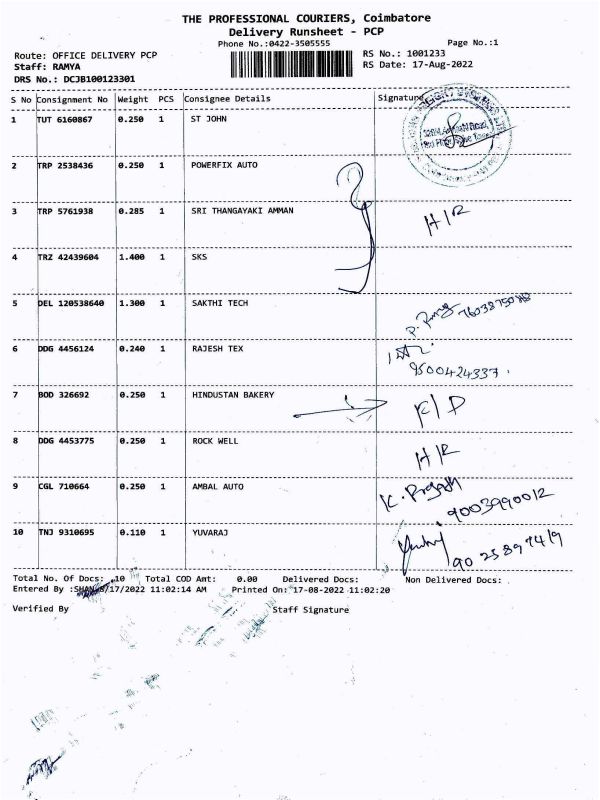 THE PROFESSIONAL COURIERS, Coimbatore
Delivery Runsheet - PCP
Phone No.:0422-3505555 Page No.:1
Route: OFFICE DELIVERY PCP RS No.: 1001233
Staff: RAMYA RS Date: 17-Aug-2022
DRS No.: DCJB100123301
S No Consignment No Weight PCS Consignee Details Signature
1 TUT 6160867 0.250 1 ST JOHN
2 TRP 2538436 0.250 1 POWERFIX AUTO
3 TRP 5761938 0.285 1 SRI THANGAYAKI AMMAN H/R
4 TRZ 42439604 1.400 1 SKS
5 DEL 120538640 1.300 1 SAKTHI TECH
6 DDG 4456124 0.240 1 RAJESH TEX
9500424337.
7 BOD 326692 0.250 1 HINDUSTAN BAKERY
8 DDG 4453775 0.250 1 ROCK WELL H/R
9 CGL 710664 0.250 1 AMBAL AUTO
9003990012
10 TNJ 9310695 0.110 1 YUVARAJ
90 25897419
Total No. Of Docs: 10 Total COD Amt: 0.00 Delivered Docs: Non Delivered Docs:
Entered By :SHAN 8/17/2022 11:02:14 AM Printed On: 17-08-2022 11:02:20
Verified By Staff Signature